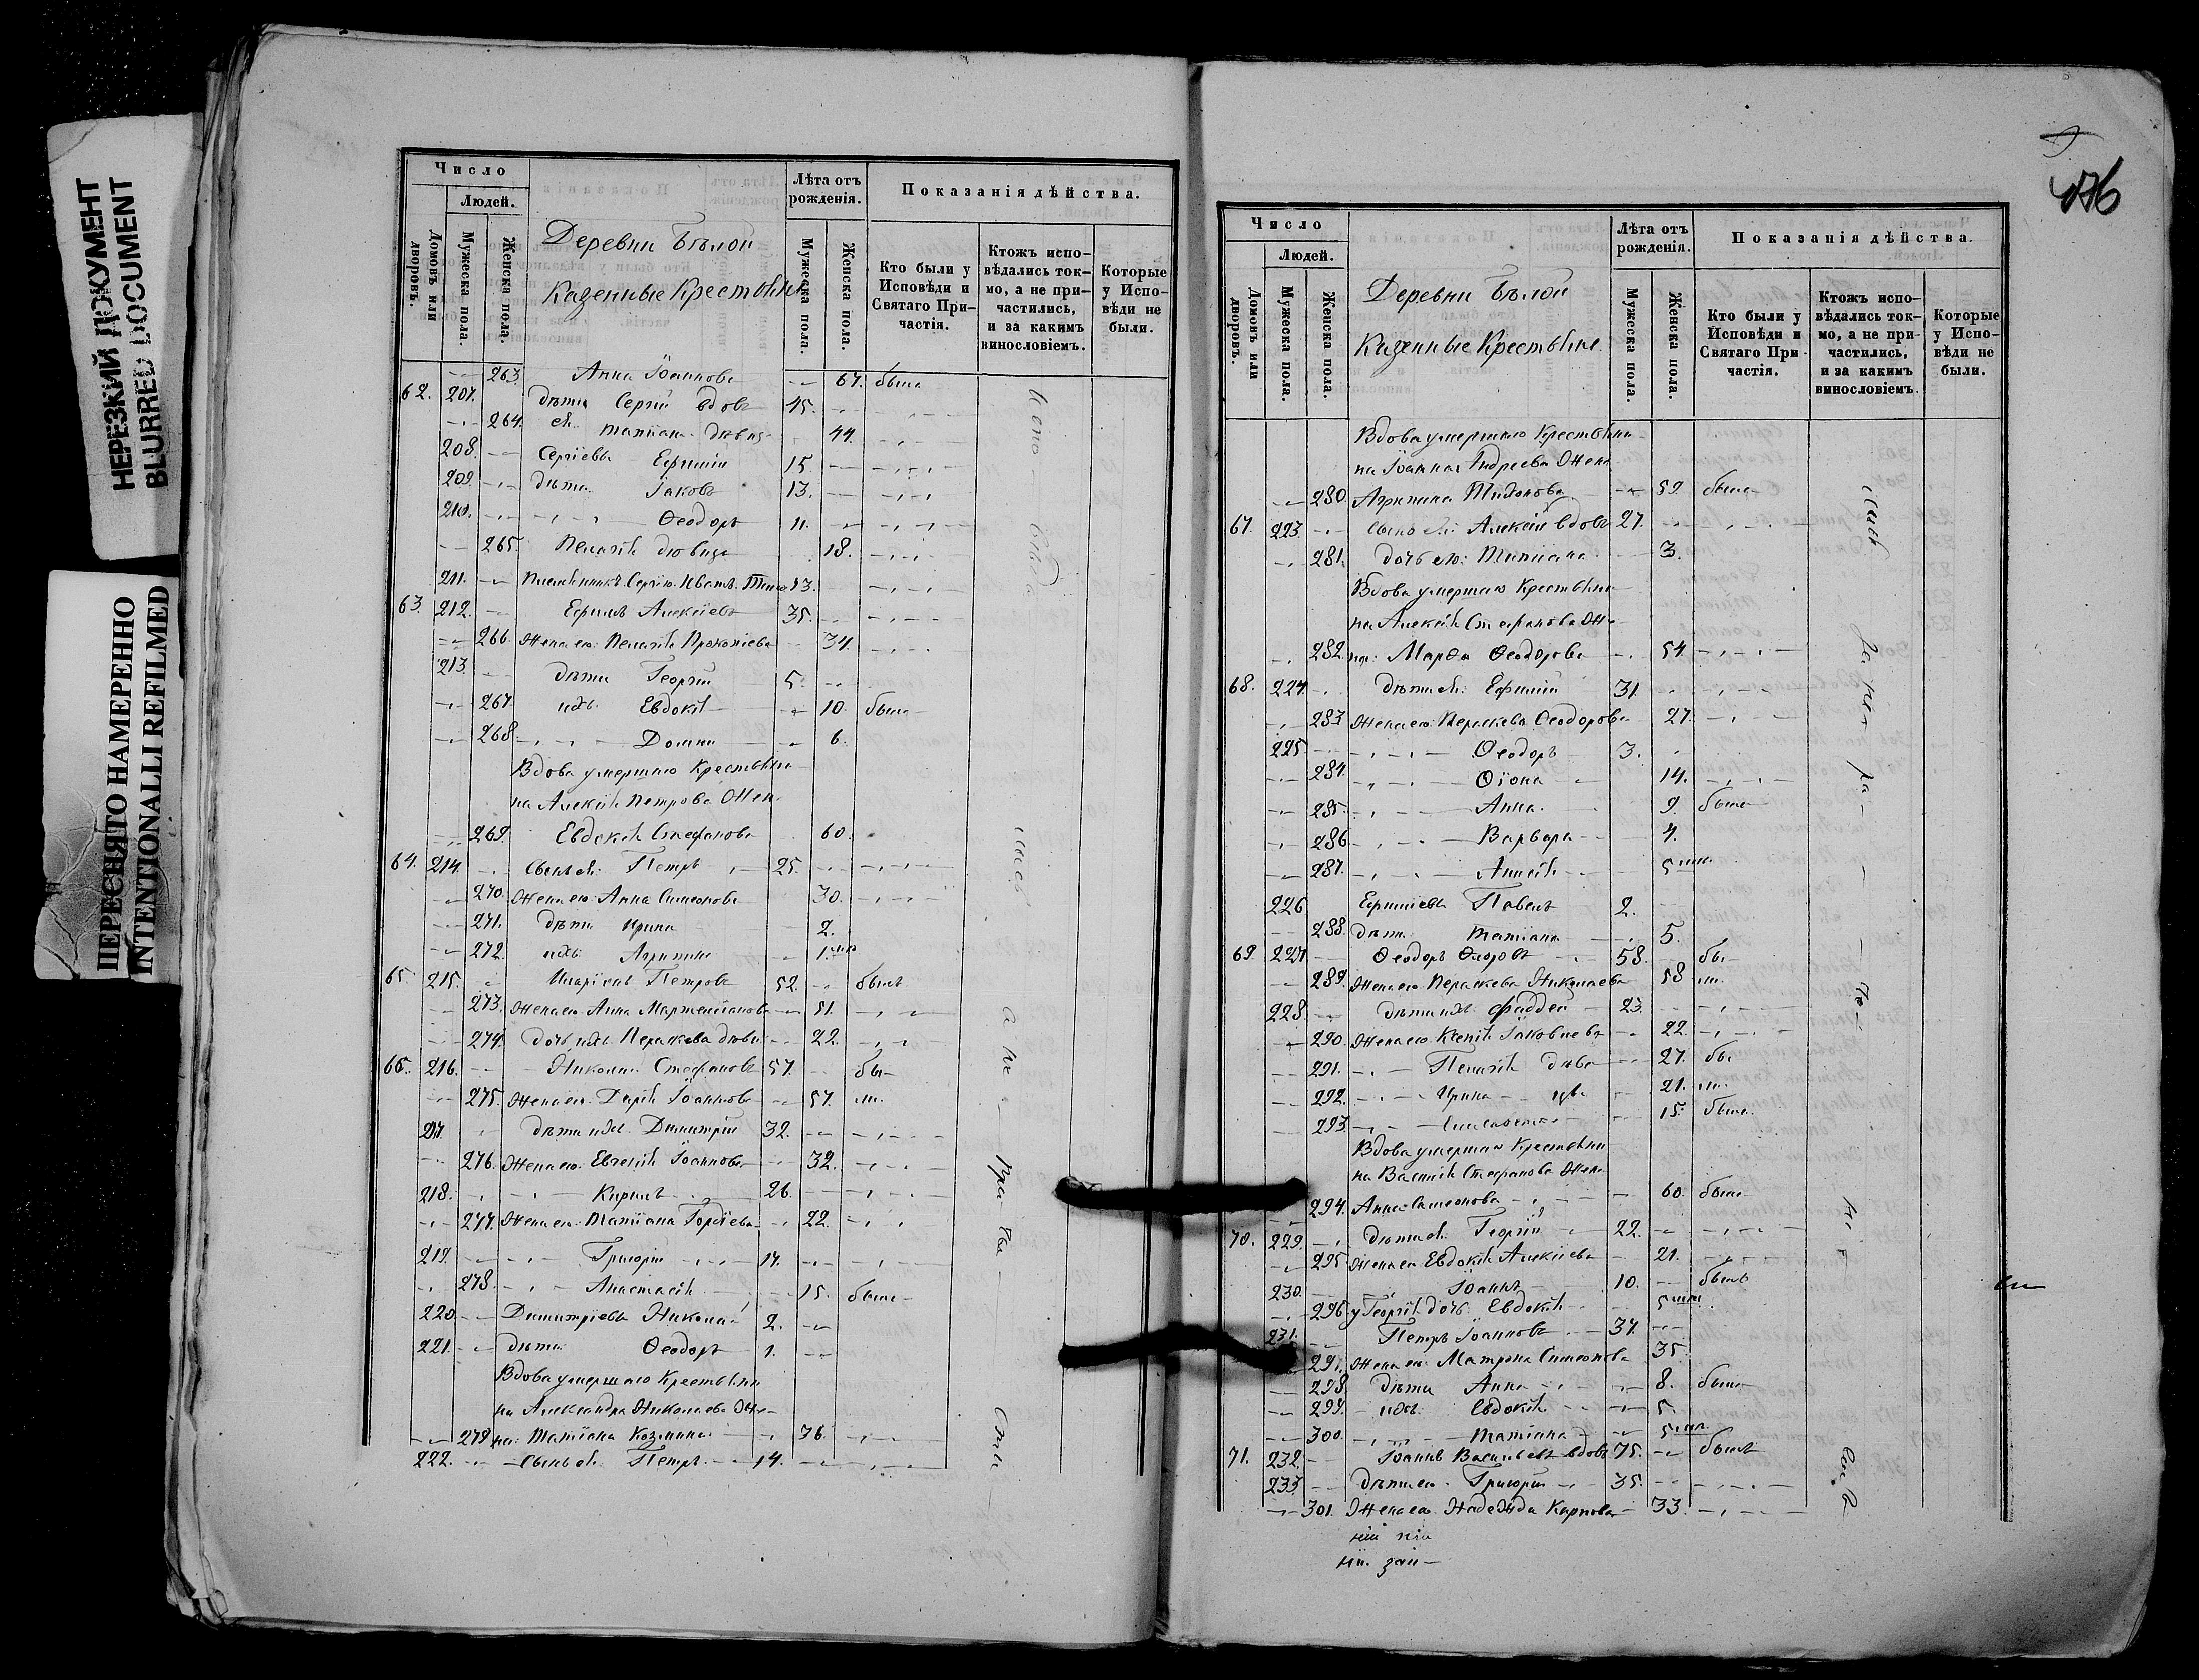 НЕРЕЗКИЙ ДОКУМЕНТ
BLURRED DOCUMENT
ПЕРЕСНЯТО НАМЕРЕННО
INTENTIONALLI REFILMED
Число
Людей.
Домовъ или дворовъ.
Мужеска пола.
Женска пола.
Деревни Бѣлой
Казенные Крестьяне
Лѣта отъ рожденія.
Мужеска пола.
Женска пола.
Показанія дѣйства.
Кто были у Исповѣди и Святаго Причастія.
Ктожъ исповѣдались токмо, а не причастились, и за какимъ винословіемъ.
Которые у Исповѣди не были.
263. Анна Іоаннова 67. была
62. 207. дѣти Сергій вдовъ 45.
264. ея Татіана дѣвица 44.
208. Сергіевы Ефимій 15.
209. дѣти Іаковъ 13.
210. Ѳеодоръ 11.
265. Пелагія дѣвица 18.
211. Племянникъ Сергію Иванъ 13.
63. 212. Ефимъ Алексіевъ 35.
266. Жена его Пелагія Прокопіева 34.
213. дѣти Георгій 5.
267. ихъ Евдокія 10. была
268. Домна 6.
Вдова умершаго Крестьяни-
на Алексія Петрова Жен.
269. Евдокія Стефанова 60.
64. 214. Сынъ ея Петръ 25.
270. Жена его Анна Симеонова 30.
271. дѣти Ирина 2.
272. ихъ
65. 215. Иларіонъ Петровъ 52. былъ
273. Жена его Анна 51.
274. дочь ихъ Параскева дѣви 22.
66. 216. Николай Стефановъ 57. бы-
275. Жена его Дарія Іоаннова 57. ли.
217. дѣти ихъ Димитрій 32.
276. Жена его Евгенія Іоаннова 32.
218. Кирилъ 26.
277. Жена его Татіана Гордіева 22.
219. Григорій 17.
278. Анастасія 15. была
220. Димитріевы Николай 2.
221. дѣти Ѳеодоръ 1.
Вдова умершаго Крестьяни
на Александра Николаева Же-
279. на: Татіана Козмина 36.
222. Сынъ ея Петръ 14.
476
Число
Людей.
Домовъ или дворовъ.
Мужеска пола.
Женска пола.
Деревни Бѣлой
Казенные Крестьяне.
Лѣта отъ рожденія.
Мужеска пола.
Женска пола.
Показанія дѣйства.
Кто были у Исповѣди и Святаго Причастія.
Ктожъ исповѣдались токмо, а не причастились, и за какимъ винословіемъ.
Которые у Исповѣди не были.
Вдова умершаго Крестьяни-
на Іоанна Андреева Жена
280. Агрипина Тихонова 59. была
67. 223. Сынъ ея: Алексій вдовъ 27.
281. дочь его: Татіана 3.
Вдова умершаго Крестьяни-
на Алексія Стефанова Же-
282. на: Марѳа Ѳеодорова 54.
68. 224. дѣти ея: Ефимій 31.
283. Жена его Параскева Ѳеодорова 27.
225. Ѳеодоръ 3.
284. 14.
285. Анна. 9. была
286. Варвара 4.
287. 5
226. Ефиміевы Павелъ 2.
288. дѣти Татіана 5.
69. 227. Ѳеодоръ 58. бы-
289. Жена его Параскева Николаева 58 ли.
228. дѣти ихъ Фаддей 23.
290. Жена его Ксенія Іаковлева 22.
291. Пелагія дѣви 27. бы
292. Ирина цы. 21. ли.
293. Елисавета 15. была.
Вдова умершаго Крестьяни
на Василія Стефанова Жена
294. Анна Симеонова 60. была
70. 229. дѣти ея Георгій 22.
295. Жена его Евдокія Алексіева 21.
230. Іоаннъ 10. былъ
296. у Георгія дочь Евдокія 5
231. Петръ Іоанновъ 37.
297. Жена его Матрона Симеонова 35.
298. дѣти Анна 8. была
299. ихъ Евдокія 5.
300. Татіана 5
71. 232. Іоаннъ Васильевъ вдовъ 75. былъ
233. дѣти его Григорій 35.
301. Жена его Надежда Карпова 33.